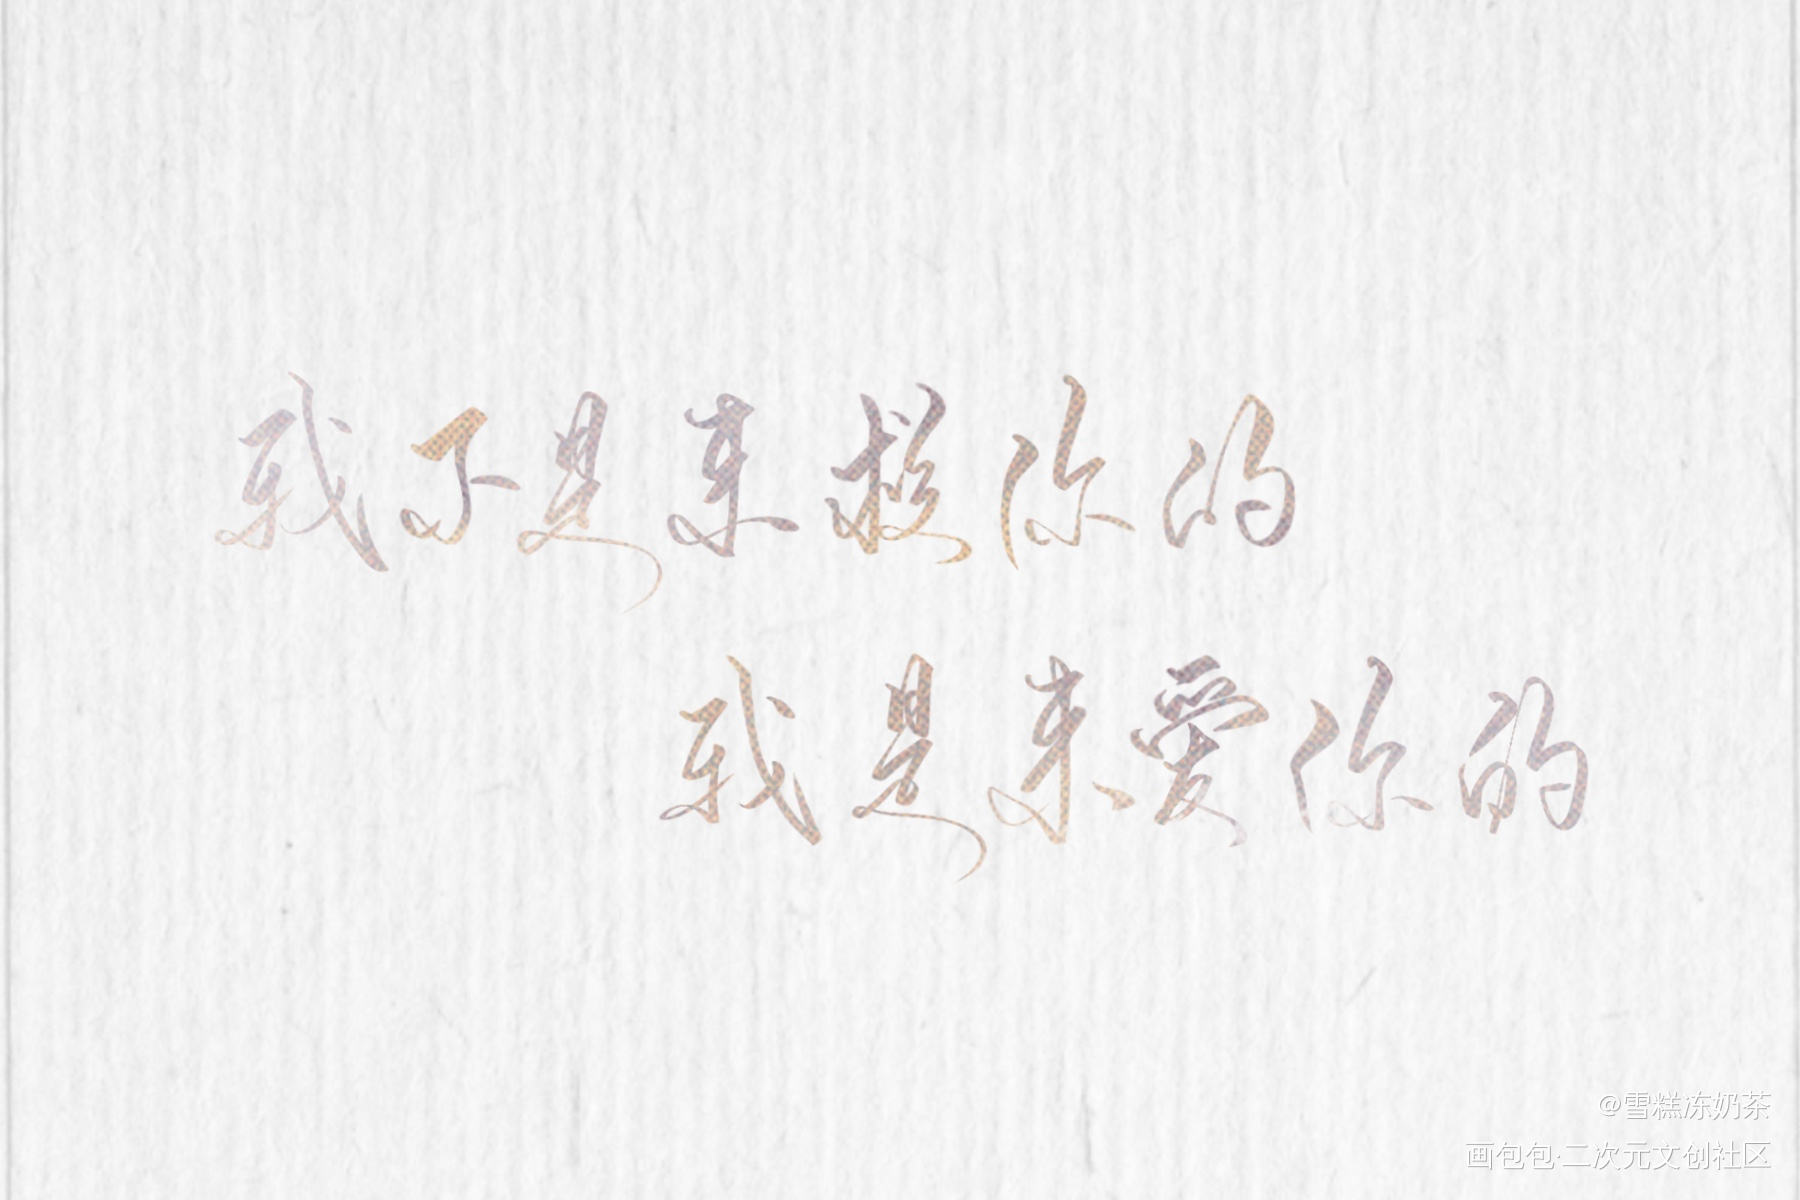 我不是来救你的
我是来爱你的
@雪糕冻奶茶
画包包·二次元文创社区